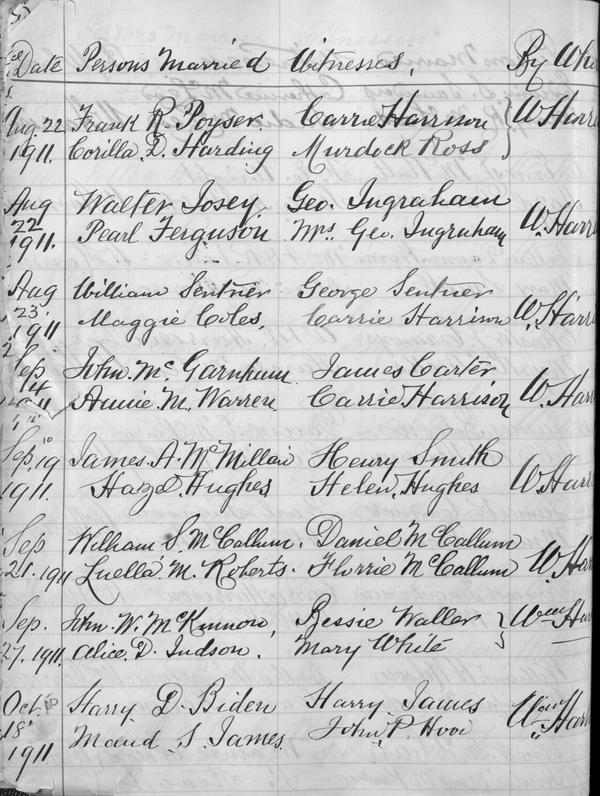 Date Persons Married Witnesses, By Whi
Aug. 22 Frank R. Poyser. Carrie Harrison W Harri
1911. Corilla. D. Harding Murdock Ross
Aug Walter Josey. Geo. Ingraham
22 Pearl Ferguson Mrs. Geo. Ingraham W. Harri
1911.
Aug William Sentner George Sentner
23. Maggie Coles, Carrie Harrison W. Harri
1911
Sep John Mc Garnhum James Carter
14 Annie M. Warren Carrie Harrison W. Harr
Sep. 19 James A. McMillan Henry Smith
1911. Hazel Hughes Helen Hughes W Harri
Sep William S. McCallum. Daniel McCallum
21. 1911 Luella. M. Roberts. Florrie McCallum W Har
Sep. John. W. McKinnon, Bessie Waller Wm Har
27. 1911. Alice. D. Judson. Mary White
Oct. Harry. D. Biden Harry James Wm Harr
18. Maud. S. James. John. P. Hooi
1911